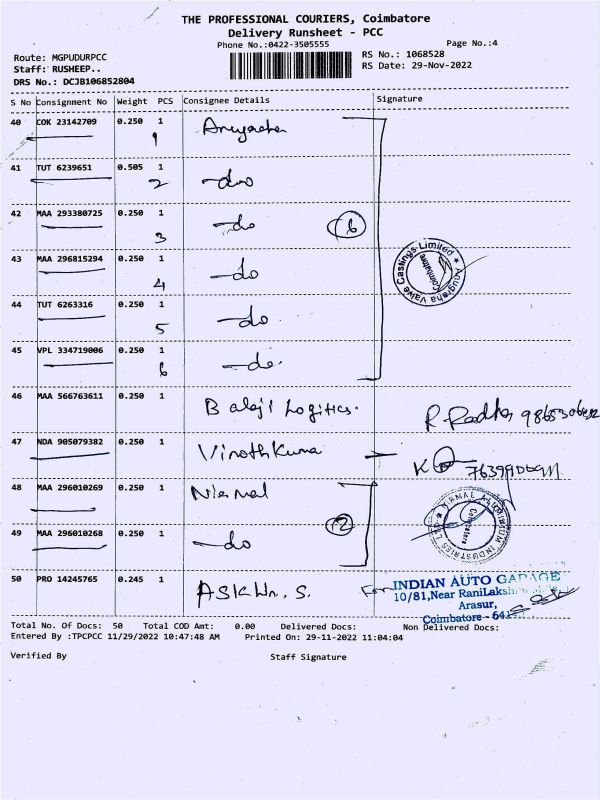 THE PROFESSIONAL COURIERS, Coimbatore
Delivery Runsheet - PCC
Phone No.:0422-3505555 Page No.:4
Route: MGPUDURPCC RS No.: 1068528
Staff: RUSHEEP.. RS Date: 29-Nov-2022
DRS No.: DCJB106852804
S No Consignment No Weight PCS Consignee Details Signature
40 COK 23142709 0.250 1
1
41 TUT 6239651 0.505 1 -do
2
42 MAA 293380725 0.250 1 -do 6
3
43 MAA 296815294 0.250 1 -do
4
Anugraha Valve Castings Limited ★ Coimbatore
44 TUT 6263316 0.250 1 -do
5
45 VPL 334719006 0.250 1 -do.
6
46 MAA 566763611 0.250 1 Balaji Logitics. R. Radha
47 NDA 905079382 0.250 1 Vinoth Kuma
48 MAA 296010269 0.250 1 Nirmal
2
49 MAA 296010268 0.250 1 -do
50 PRO 14245765 0.245 1 For INDIAN AUTO GARAGE
10/81,Near
Arasur,
Coimbatore -
Total No. Of Docs: 50 Total COD Amt: 0.00 Delivered Docs: Non Delivered Docs:
Entered By :TPCPCC 11/29/2022 10:47:48 AM Printed On: 29-11-2022 11:04:04
Verified By Staff Signature